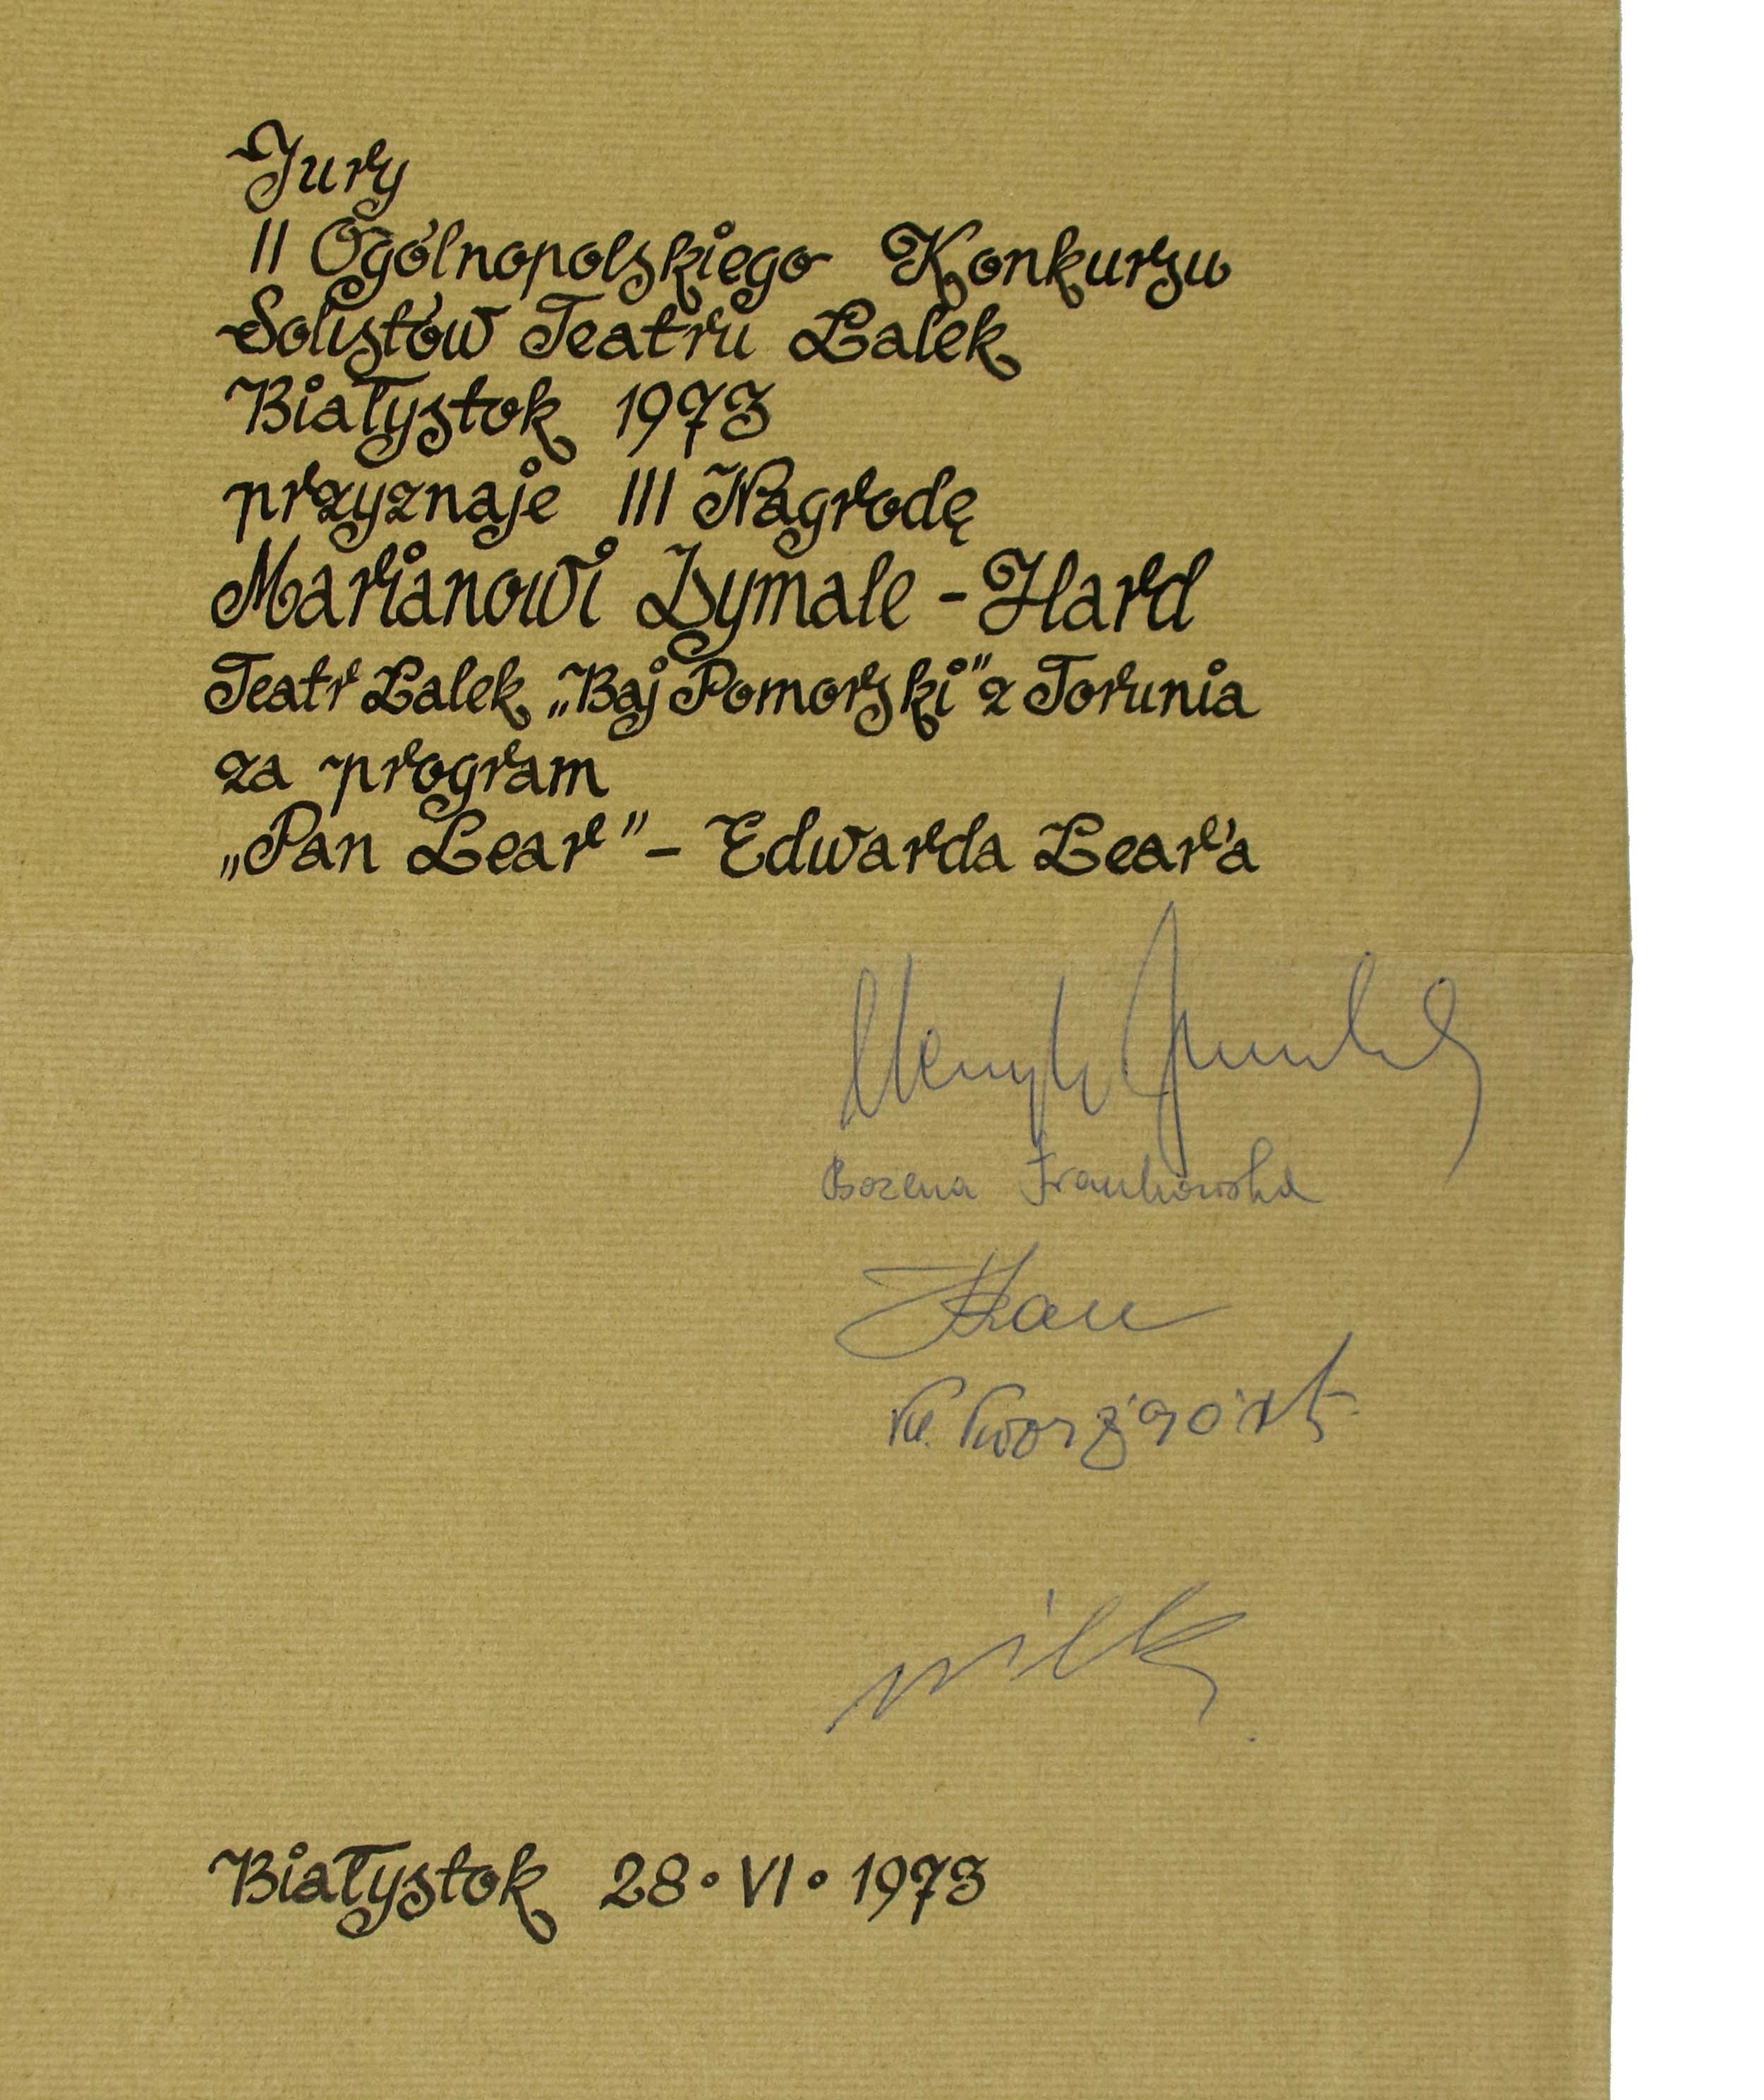 Jury
II Ogólnopolskiego Konkursu
Solistów Teatru Lalek
Białystok 1973
przyznaje III Nagrodę
Marianowi Dymale - Hard
Teatr Lalek „Baj Pomorski” z Torunia
za program
„Pan Lear” – Edwarda Lear'a
Henryk
Bożena Frankowska
wilk
Białystok 28 • VI • 1973